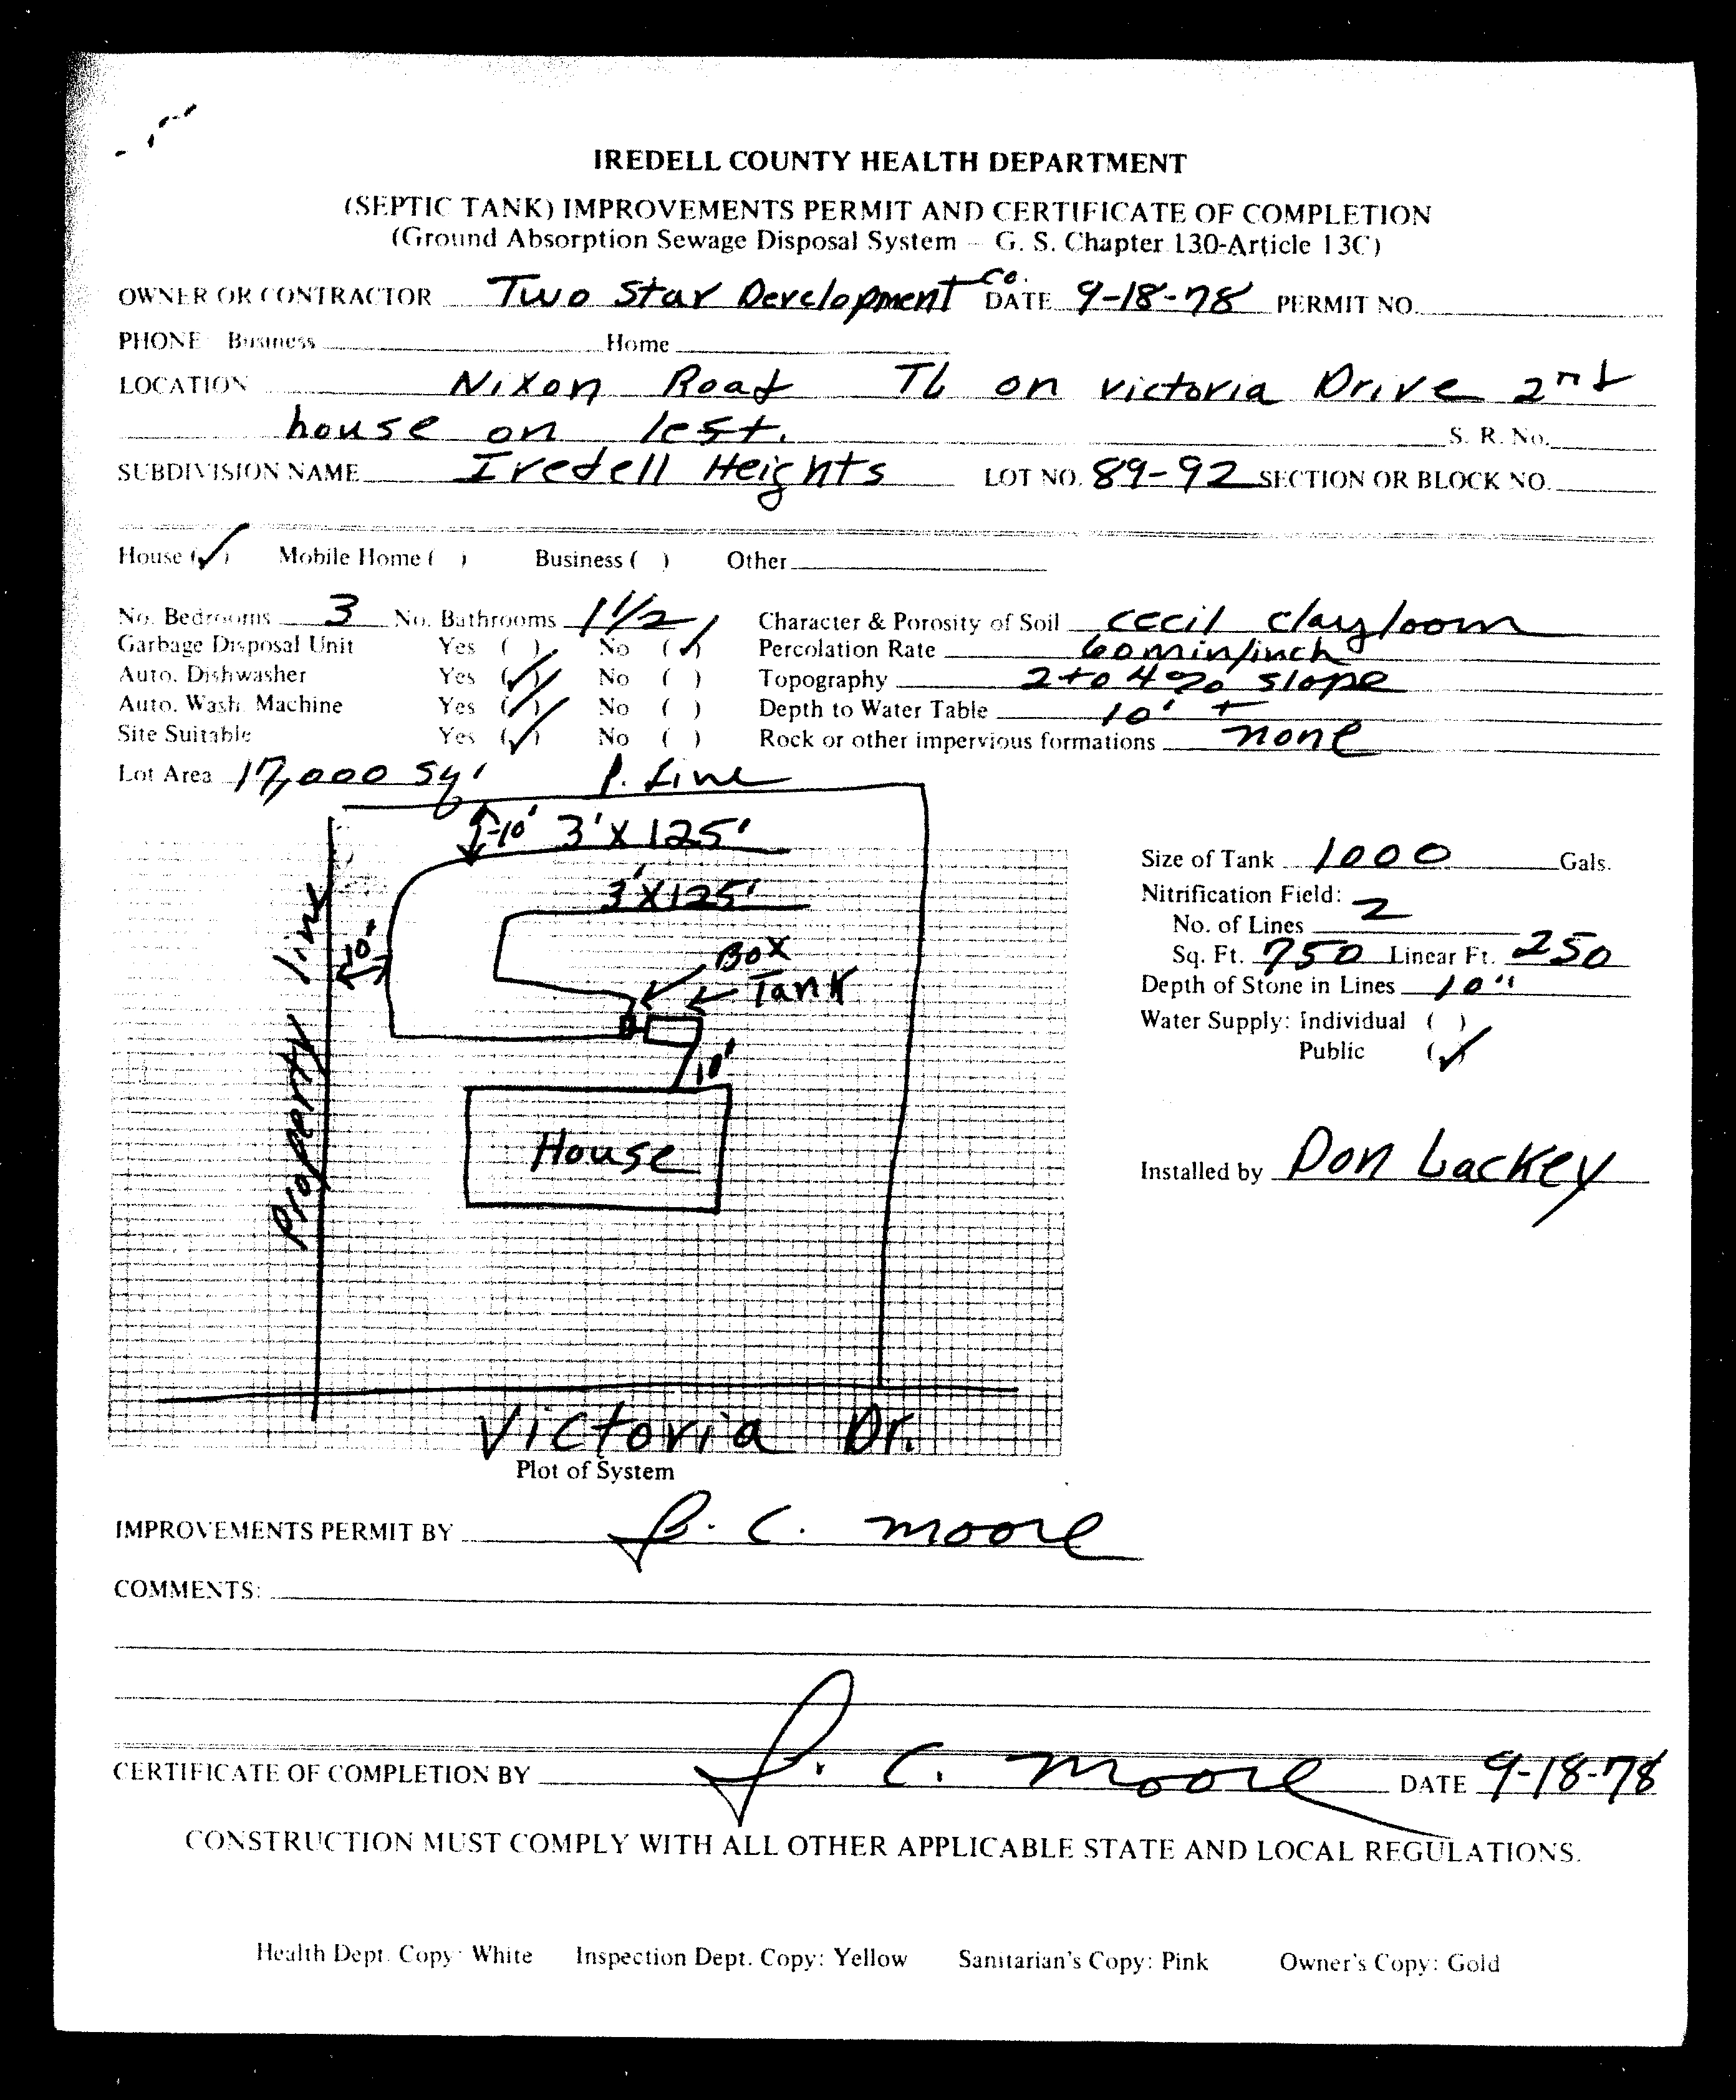 IREDELL COUNTY HEALTH DEPARTMENT
(SEPTIC TANK) IMPROVEMENTS PERMIT AND CERTIFICATE OF COMPLETION
(Ground Absorption Sewage Disposal System – G. S. Chapter 130-Article 13C)
OWNER OR CONTRACTOR Two Star Development Co. DATE 9-18-78 PERMIT NO.
PHONE: Business Home
LOCATION Nixon Road TL on victoria Drive 2nd
house on left. S. R. No.
SUBDIVISION NAME Iredell Heights LOT NO. 89-92 SECTION OR BLOCK NO.
House (✓) Mobile Home ( ) Business ( ) Other
No. Bedrooms 3 No. Bathrooms 1 1/2 Character & Porosity of Soil cecil clay loom
Garbage Disposal Unit Yes ( ) No (✓) Percolation Rate 60 min/inch
Auto. Dishwasher Yes (✓) No ( ) Topography 2 to 4% slope
Auto. Wash. Machine Yes (✓) No ( ) Depth to Water Table 10' +
Site Suitable Yes (✓) No ( ) Rock or other impervious formations none
Lot Area 17,000 sq' P. Line
10' 3'X125'
3'X125'
Property line
10'
Box
Tank
10'
House
Victoria Dr.
Plot of System
Size of Tank 1000 Gals.
Nitrification Field:
No. of Lines 2
Sq. Ft. 750 Linear Ft. 250
Depth of Stone in Lines 10"
Water Supply: Individual ( )
Public (✓)
Installed by Don Lackey
IMPROVEMENTS PERMIT BY J. C. Moore
COMMENTS:
CERTIFICATE OF COMPLETION BY J. C. Moore DATE 9-18-78
CONSTRUCTION MUST COMPLY WITH ALL OTHER APPLICABLE STATE AND LOCAL REGULATIONS.
Health Dept. Copy: White Inspection Dept. Copy: Yellow Sanitarian's Copy: Pink Owner's Copy: Gold